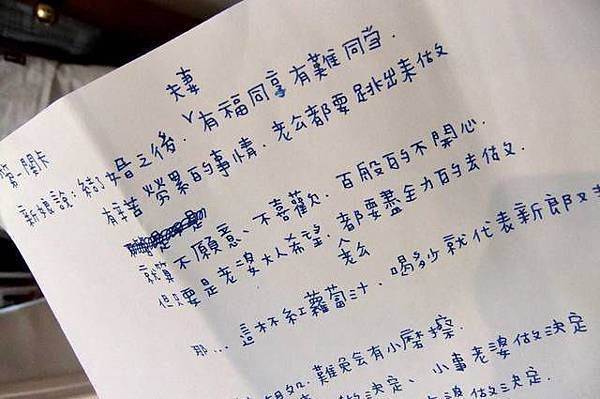 第一關卡
夫妻
新娘說:結婚之後.有福同享有難同當.
有辛苦勞累的事情.老公都要跳出來做
就算不願意、不喜歡.百般的不開心.
但只要是老婆大人希望.老公都要盡全力的去做.
那...這杯紅蘿蔔汁.喝多少就代表新郎又
難免會有小磨擦.
做決定、小事老婆做決定
老婆做決定.